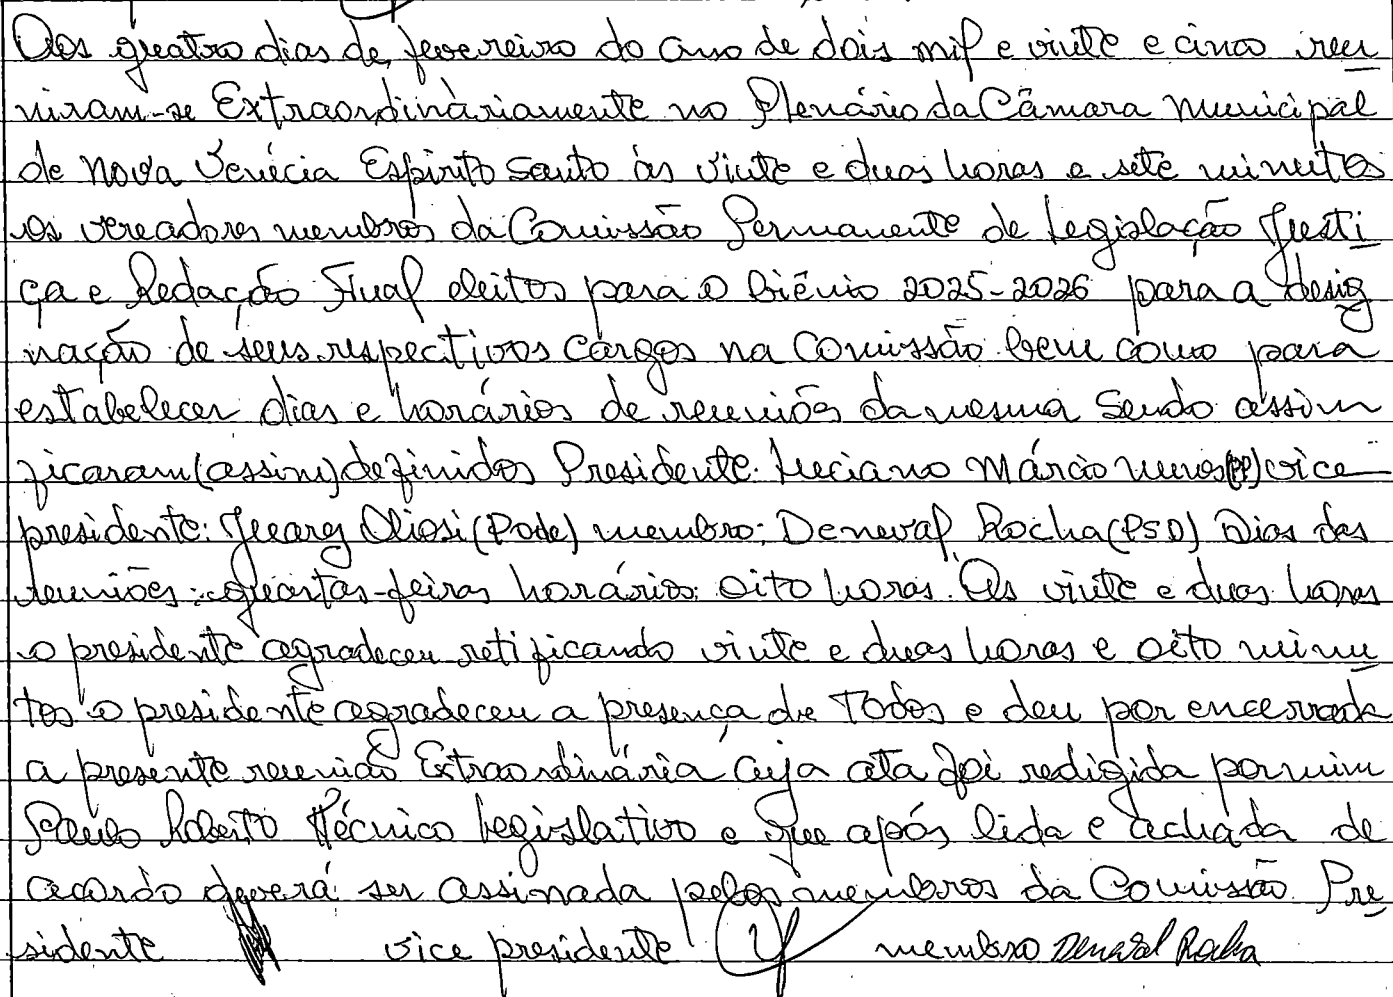 Aos quatro dias de fevereiro do ano de dois mil e vinte e cinco reu
niram-se Extraordináriamente no Plenário da Câmara Municipal
de Nova Venécia Espírito Santo às vinte e duas horas e sete minutos
os vereadores membros da Comissão Permanente de Legislação Justi
ça e Redação Final eleitos para o biênio 2025-2026 para a desig
nação de seus respectivos cargos na Comissão bem como para
estabelecer dias e horários de reuniões da mesma Sendo assim
ficaram (assim) definidos Presidente: Luciano Márcio Nunes (PP) vice
presidente: Juarez Oliosi (Pode) membro: Deneval Rocha (PSD) Dias das
reuniões: quartas-feiras horário: oito horas. Às vinte e duas horas
o presidente agradeceu retificando vinte e duas horas e oito minu
tos o presidente agradeceu a presença de Todos e deu por encerrada
a presente reunião Extraordinária cuja ata foi redigida por mim
Paulo Roberto Técnico Legislativo e que após lida e achada de
acordo deverá ser assinada pelos membros da Comissão. Pre
sidente vice presidente membro Deneval Rocha